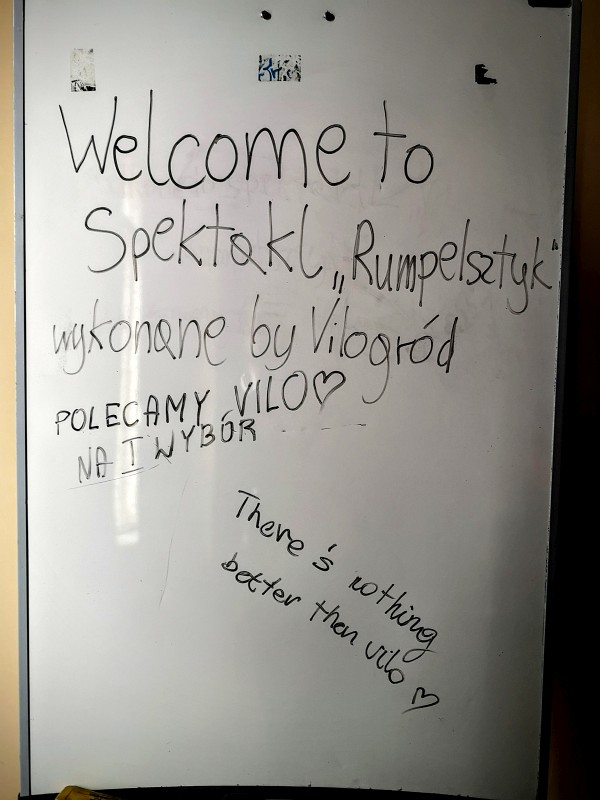 Welcome to
Spektakl „Rumpelsztyk"
wykonane by Vilogród
POLECAMY VILO♡
NA I WYBÓR
There's nothing
better than vilo ♡